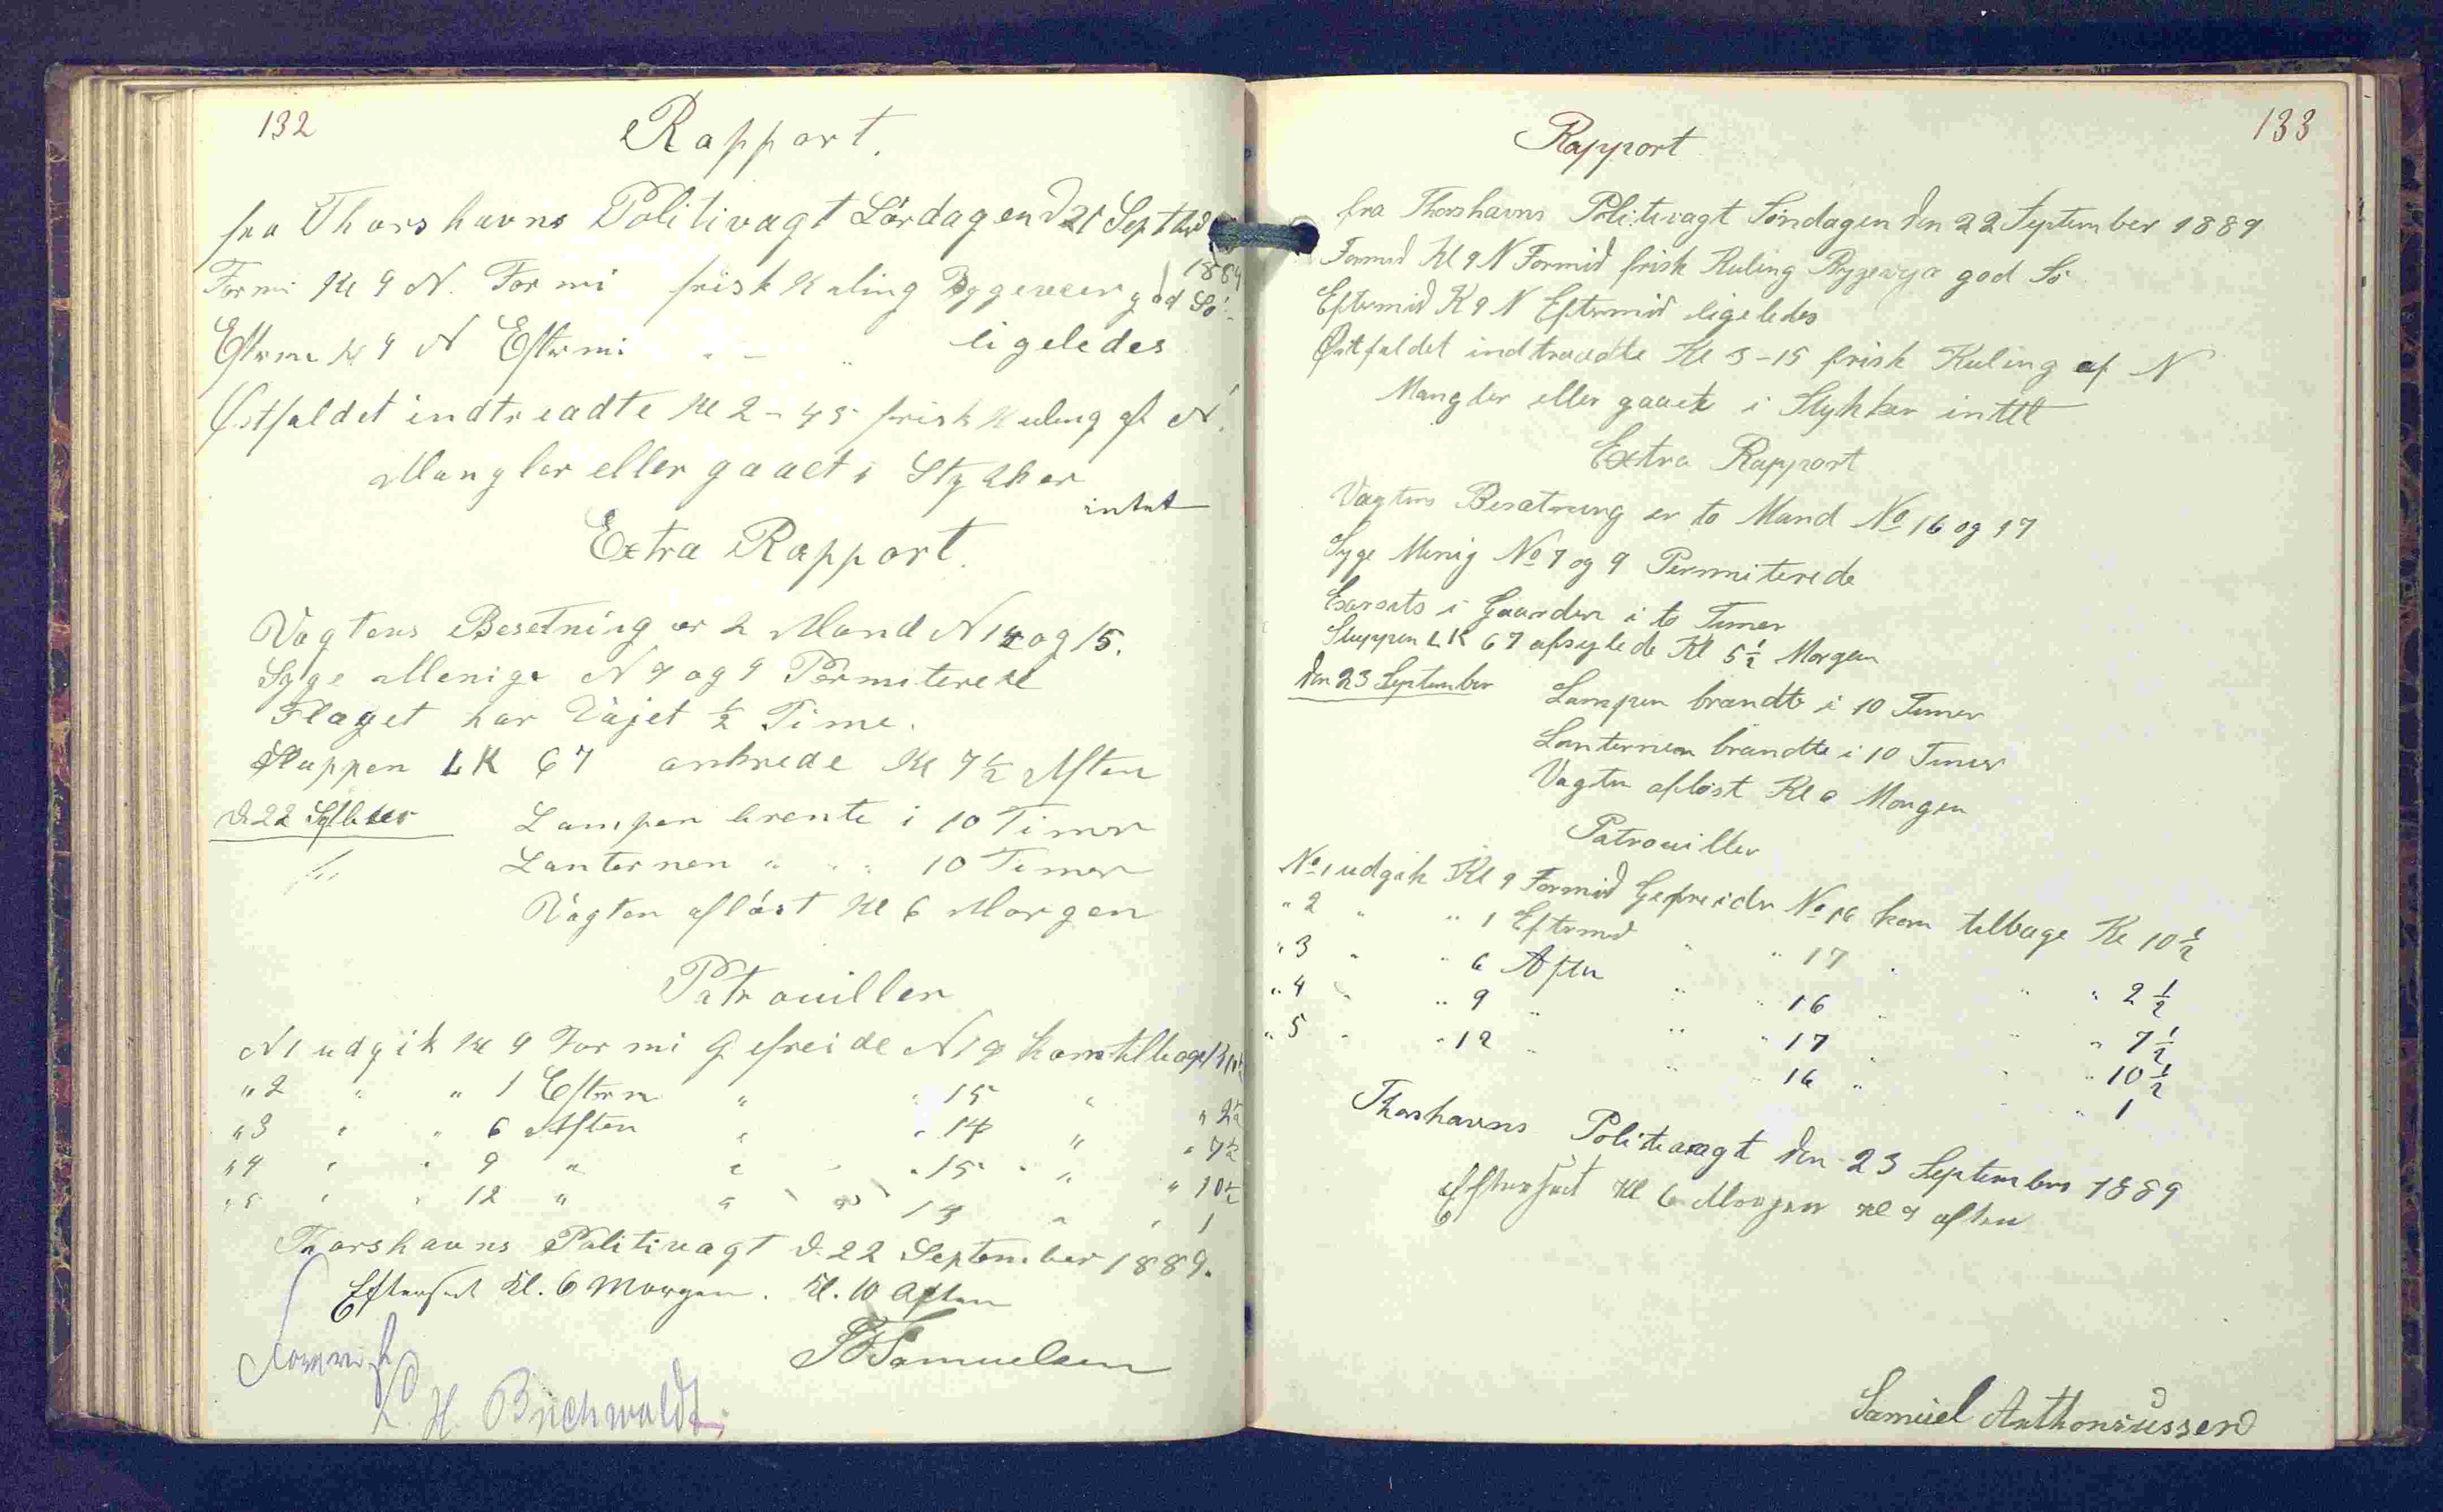 132
Rapport.
fra Thorshavns Politivagt Lördagen d 21 Septbr
1889
Formi Kl 9 N. Formi frisk Kuling Bygeveer god Sö
Efterm Kl 9 N Eftermi " — " ligeledes
Östfaldet indtreadte Kl 2-45 frisk Kuling af N.
Manglar eller gaaet i Stykker
intet
Extra Rapport.
Vagtens Besetning er 2 Mand N 14 og 15.
Syge Menige N 7 og 9 Permiterede
Flaget har Vajet ½ Time.
Sluppen LK 67 ankrede Kl 7½ Aften
d. 22 Septbr
Lampen brente i 10 Timer
Lanternen " " " 10 Timer
Vagten aflöst Kl 6 Morgen
Patrouiller
N 1 udgik Kl 9 Formi Gefreide N 14 kom tilbage Kl 10½
" 2 " " 1 Efterm " " 15 " " 2½
" 3 " " 6 Aften " " 14 " " 7½
" 4 " " 9 " " " 15 " " 10½
" 5 " " 12 " " " 14 " " 1
Thorshavns Politivagt d. 22 September 1889.
Efterset Kl. 6 Morgen. Kl. 10 Aften
Samuelsen
H. Buchwaldt
133
Rapport
fra Thorshavns Politivagt Söndagen den 22 September 1889
Formid Kl 9 N Formid frisk Kuling Bygevejr god Sö
Eftermid K 9 N Eftermid ligeledes
Östfaldet indtraadte Kl 3-15 frisk Kuling af N
Mangler eller gaaet i Stykker intet
Extra Rapport
Vagtens Besætning er to Mand No 16 og 17
Syge Menig No 7 og 9 Permiterede
Exersits i Gaarden i to Timer
Sluppen LK 67 afsejlede Kl 5½ Morgen
den 23 September
Lampen brændte i 10 Timer
Lanternen brændte i 10 Timer
Vagten aflöst Kl 6 Morgen
Patrouiller
No 1 udgik Kl 9 Formid Gefreider No 16 kom tilbage Kl 10½
" 2 " " 1 Eftermid " " 17 " " " 2½
" 3 " " 6 Aften " " 16 " " " 7½
" 4 " " 9 " " " 17 " " " 10½
" 5 " " 12 " " " 16 " " " 1
Thorshavns Politivagt den 23 September 1889
Efterset Kl 6 Morgen Kl 9 aften
Samuel Anthoniussen